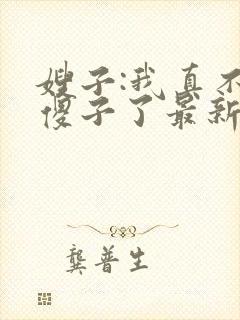 嫂子:我真不
傻子了最新
龔普生